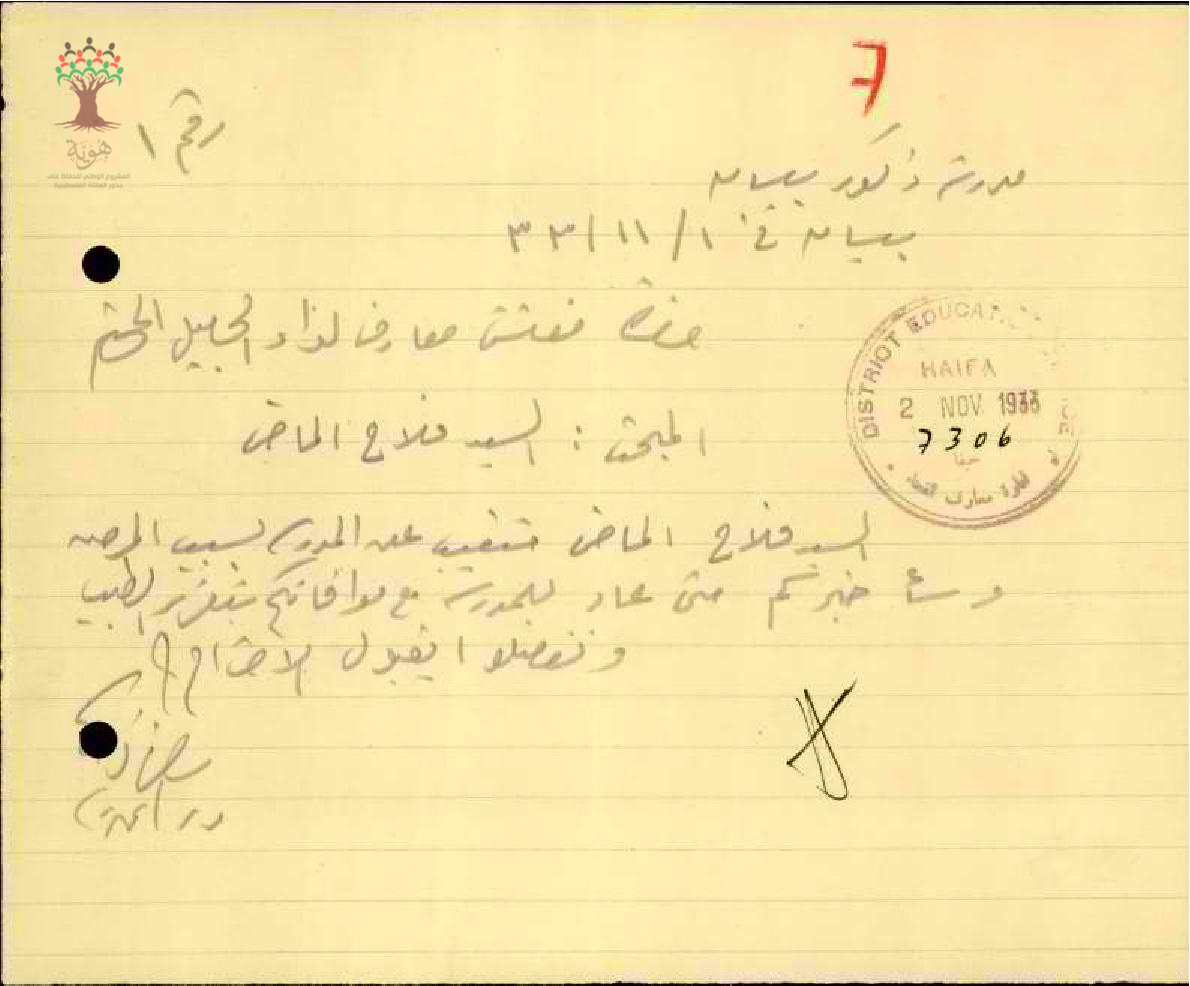 7
هوية
المشروع الوطني للحفاظ على
جذور العائلة الفلسطينية
رقم ١
مدرسة ذكور بيسان
بيسان في ١/١١/٣٣
حضرة مفتش معارف لواء الجليل المحترم
DISTRICT EDUCATION
HAIFA
2 NOV 1933
7306
حيفا
ادارة معارف
المبحث : السيد فلاح الماضي
السيد فلاح الماضي متغيب عن المدرسة بسبب المرض
وسأخبركم متى عاد للمدرسة مع موافاتكم بتقرير الطبيب
وتفضلوا بقبول الاحترام
مدير المدرسة